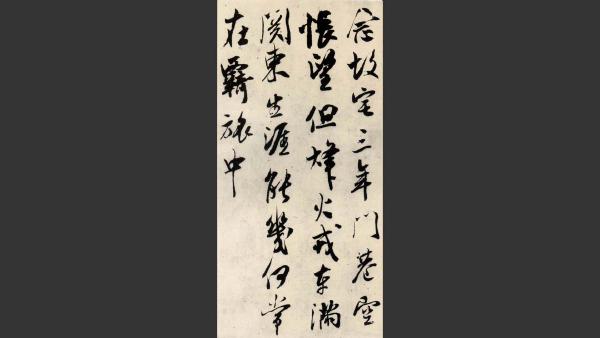 念故宅三年門巷空
悵望但烽火戎車滿
関東生涯能幾何常
在覊旅中